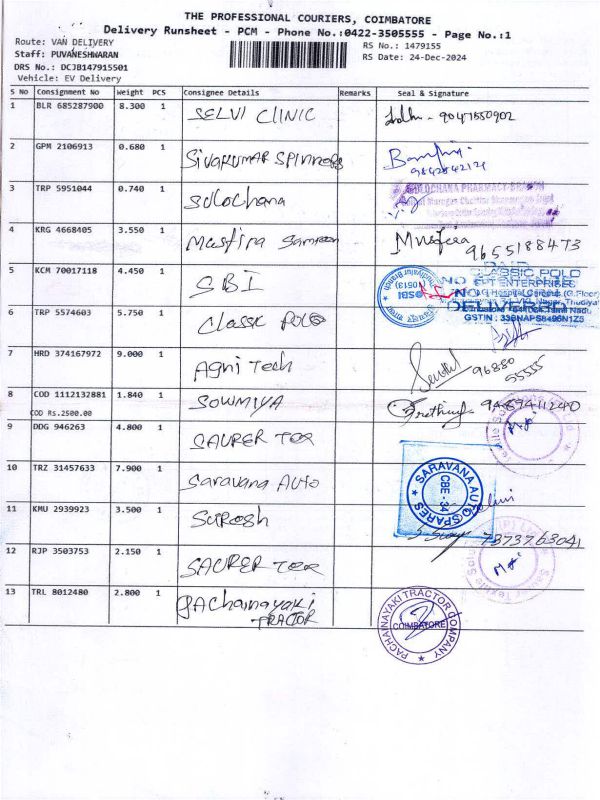 THE PROFESSIONAL COURIERS, COIMBATORE
Delivery Runsheet - PCM - Phone No.:0422-3505555 - Page No.:1
Route: VAN DELIVERY
Staff: PUVANESHWARAN
DRS No.: DCJB147915501
Vehicle: EV Delivery
RS No.: 1479155
RS Date: 24-Dec-2024
S No Consignment No Weight PCS Consignee Details Remarks Seal & Signature
1 BLR 685287900 8.300 1 SELVI CLINIC
2 GPM 2106913 0.680 1 Sivakumar Spinners Bamfua 9842842124
3 TRP 5951044 0.740 1 Solochana SOLOCHANA PHARMACY
4 KRG 4668405 3.550 1 Musfira Samreen Musfira 9655188473
5 KCM 70017118 4.450 1 SBI
CLASSIC POLO
ENTERPRISES
DELIVERED
GSTIN : 33BNAPS8496N1Z5
6 TRP 5574603 5.750 1 Classic Polo
7 HRD 374167972 9.000 1 Agni Tech 96880 55555
8 COD 1112132881 1.840 1 SOWMIYA 9489411240
COD Rs.2500.00
9 DDG 946263 4.800 1 SAURER TEX
10 TRZ 31457633 7.900 1 Saravana Auto SARAVANA AUTO SPARES CBE-34
11 KMU 2939923 3.500 1 Suresh 7373763041
12 RJP 3503753 2.150 1 SAURER TEX
13 TRL 8012480 2.800 1 PAchainayaki TRACTOR PACHAINAYAKI TRACTOR COMPANY COIMBATORE